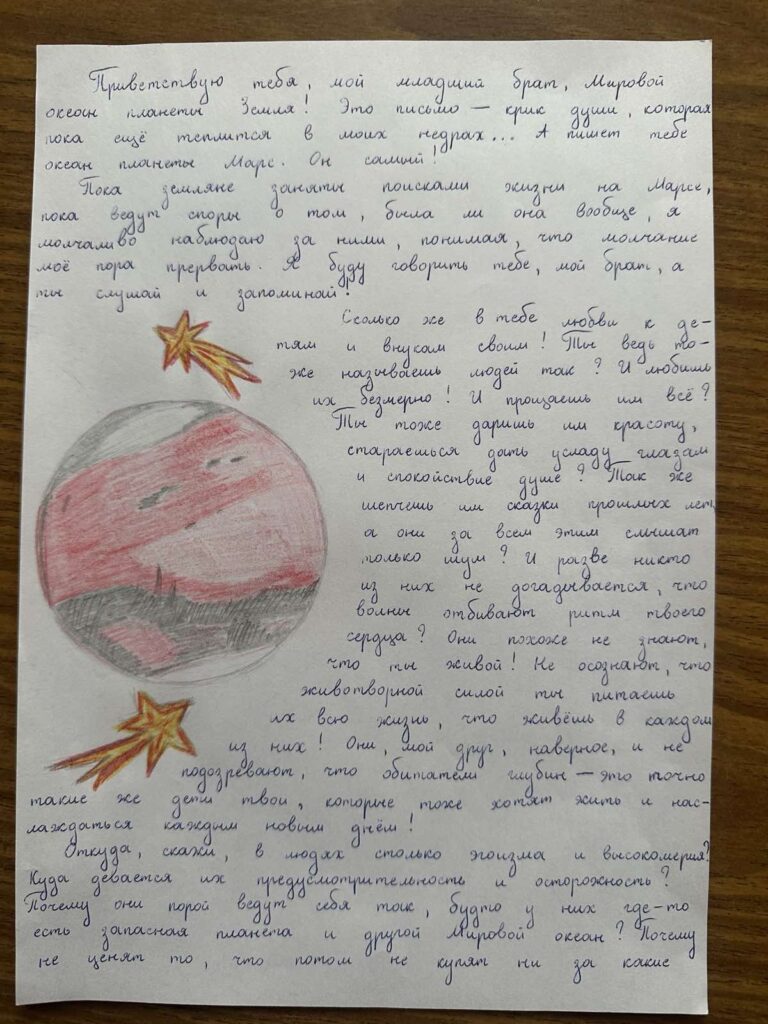 Приветствую тебя, мой младший брат, Мировой
океан планеты Земля! Это письмо — крик души, которая
пока ещё теплится в моих недрах... А пишет тебе
океан планеты Марс. Он самый!
Пока земляне заняты поисками жизни на Марсе,
пока ведут споры о том, была ли она вообще, я
молчаливо наблюдаю за ними, понимая, что молчание
моё пора прервать. Я буду говорить тебе, мой брат, а
ты слушай и запоминай!
Сколько же в тебе любви к де-
тям и внукам своим! Ты ведь то-
же называешь людей так? И любишь
их безмерно! И прощаешь им всё?
Ты тоже даришь им красоту,
стараешься дать усладу глазам
и спокойствие душе? Так же
шепчешь им сказки прошлых лет,
а они за всем этим слышат
только шум? И разве никто
из них не догадывается, что
волны отбивают ритм твоего
сердца? Они похоже не знают,
что ты живой! Не осознают, что
животворной силой ты питаешь
их всю жизнь, что живёшь в каждом
из них! Они, мой друг, наверное, и не
подозревают, что обитатели глубин — это точно
такие же дети твои, которые тоже хотят жить и нас-
лаждаться каждым новым днём!
Откуда, скажи, в людях столько эгоизма и высокомерия?
Куда девается их предусмотрительность и осторожность?
Почему они порой ведут себя так, будто у них где-то
есть запасная планета и другой Мировой океан? Почему
не ценят то, что потом не купят ни за какие